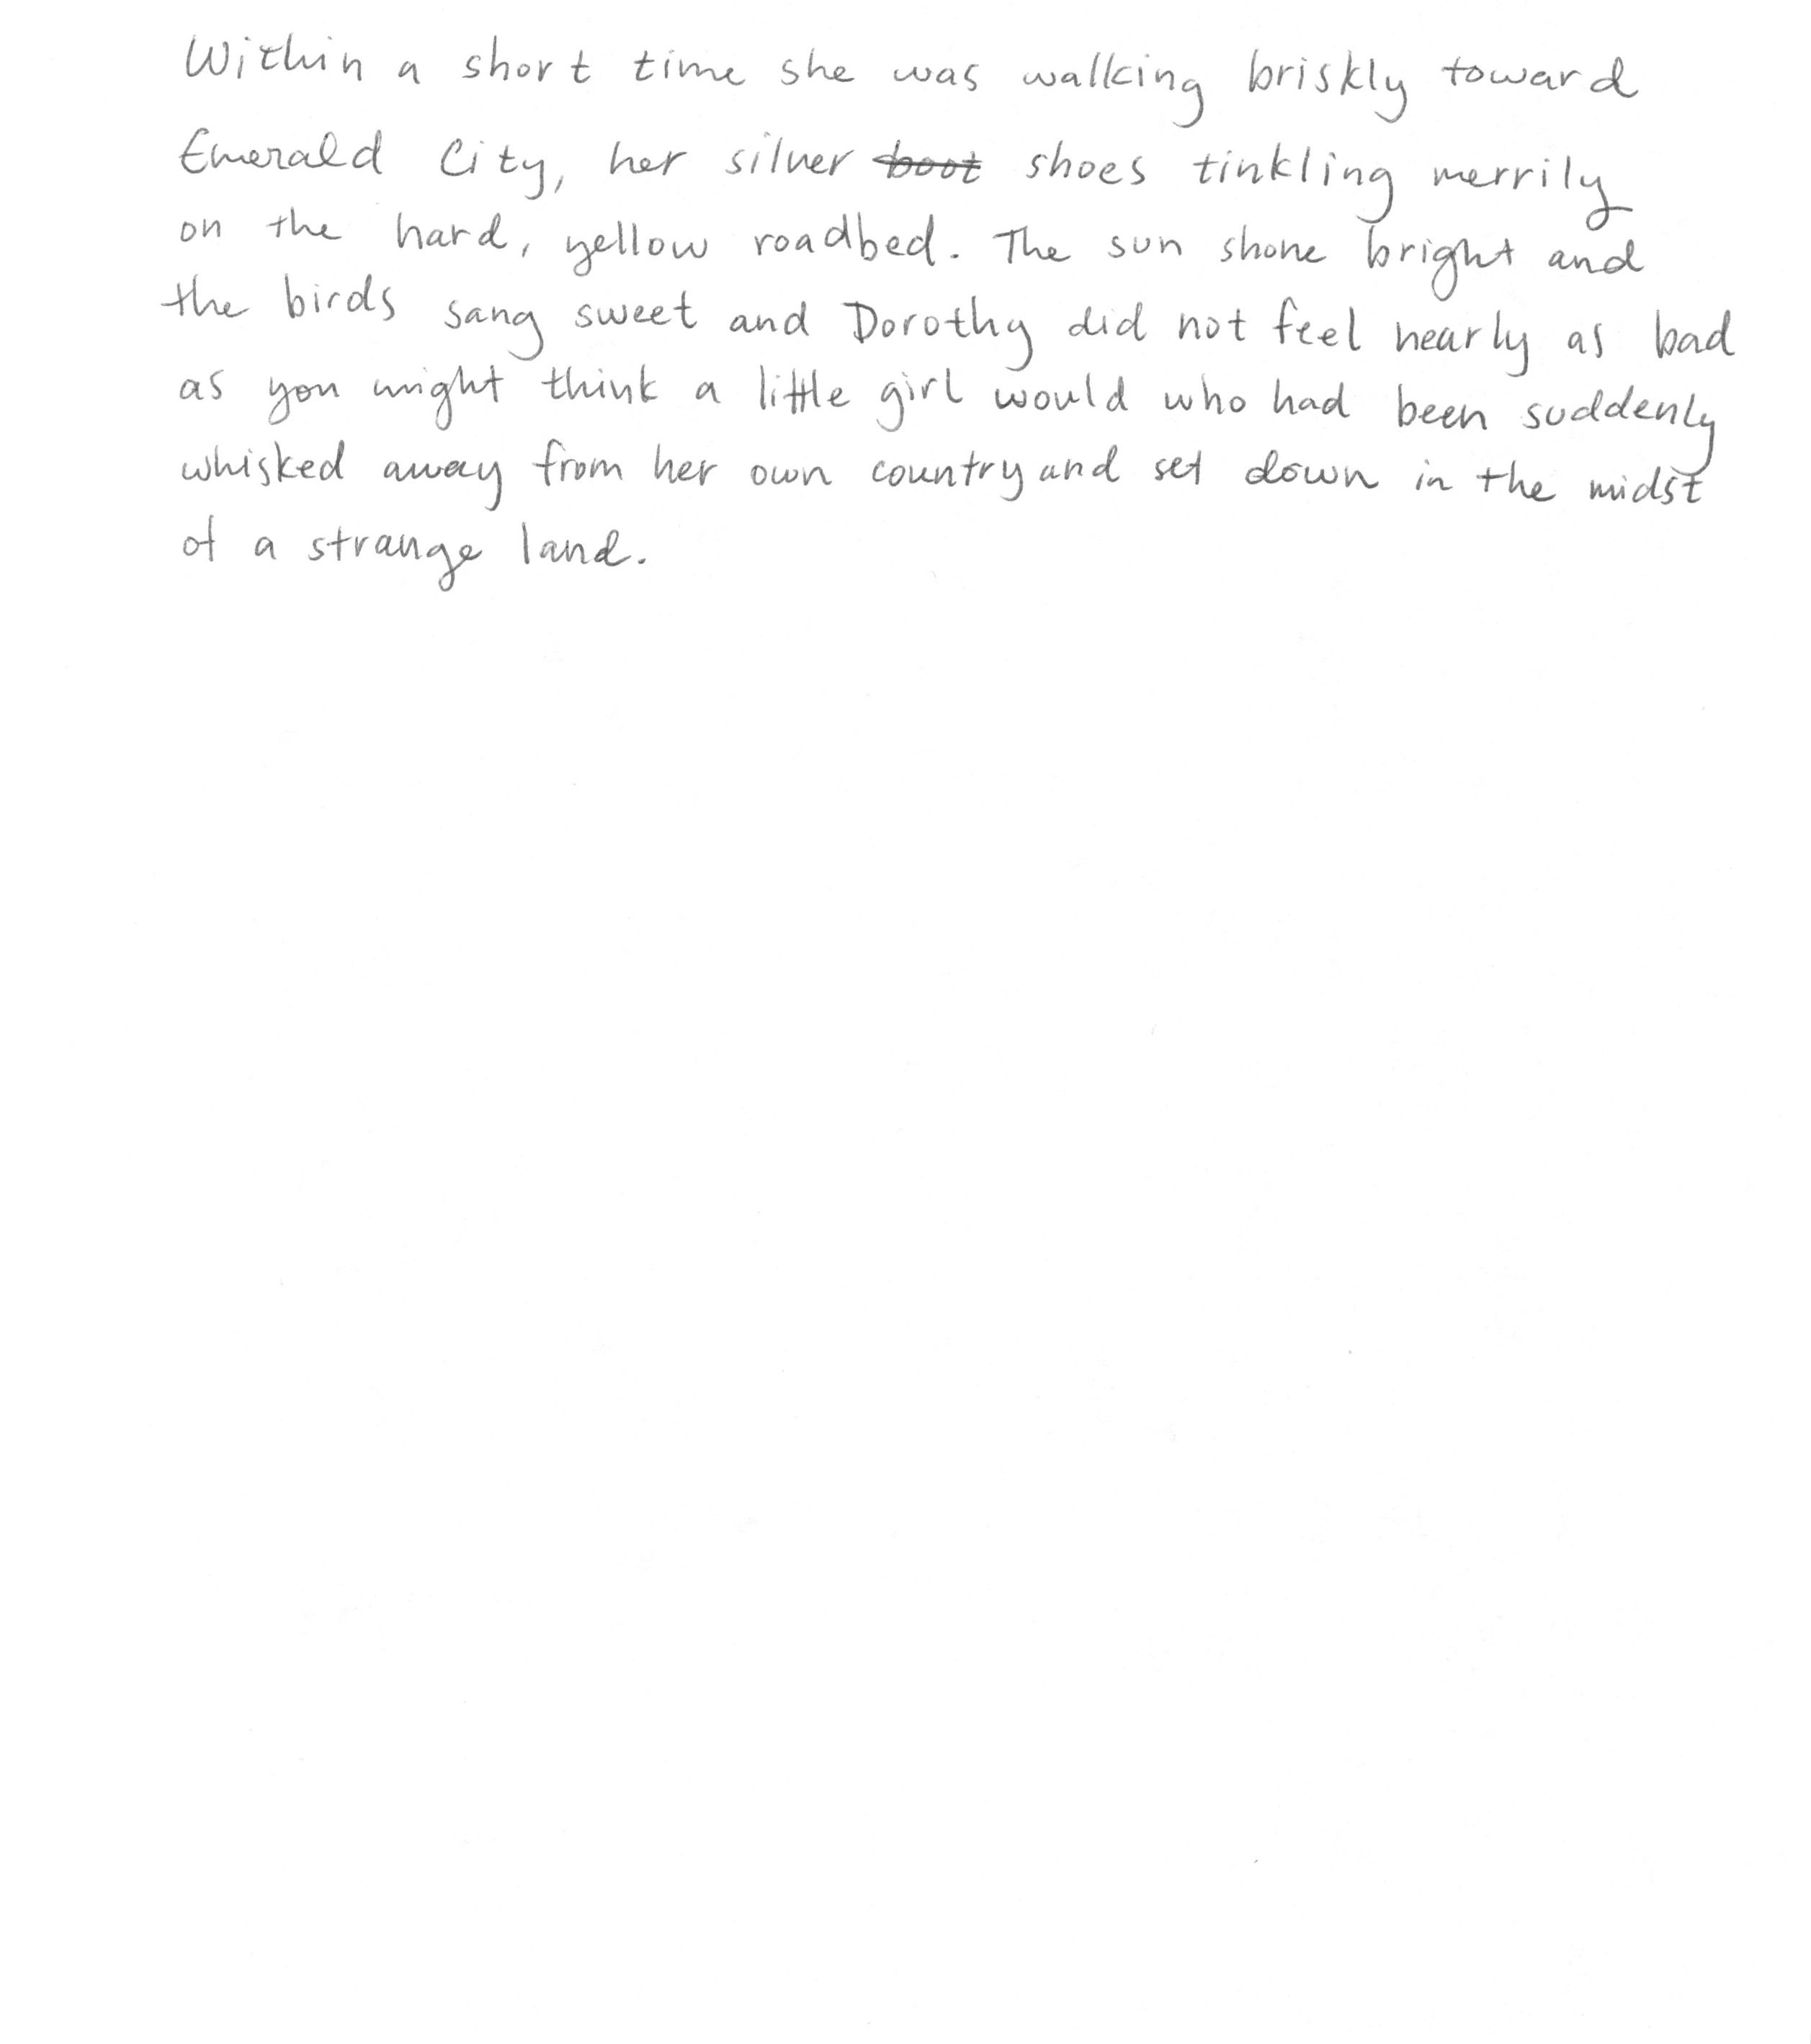 Within a short time she was walking briskly toward
Emerald City, her silver boot shoes tinkling merrily
on the hard, yellow roadbed. The sun shone bright and
the birds sang sweet and Dorothy did not feel nearly as bad
as you might think a little girl would who had been suddenly
whisked away from her own country and set down in the midst
of a strange land.